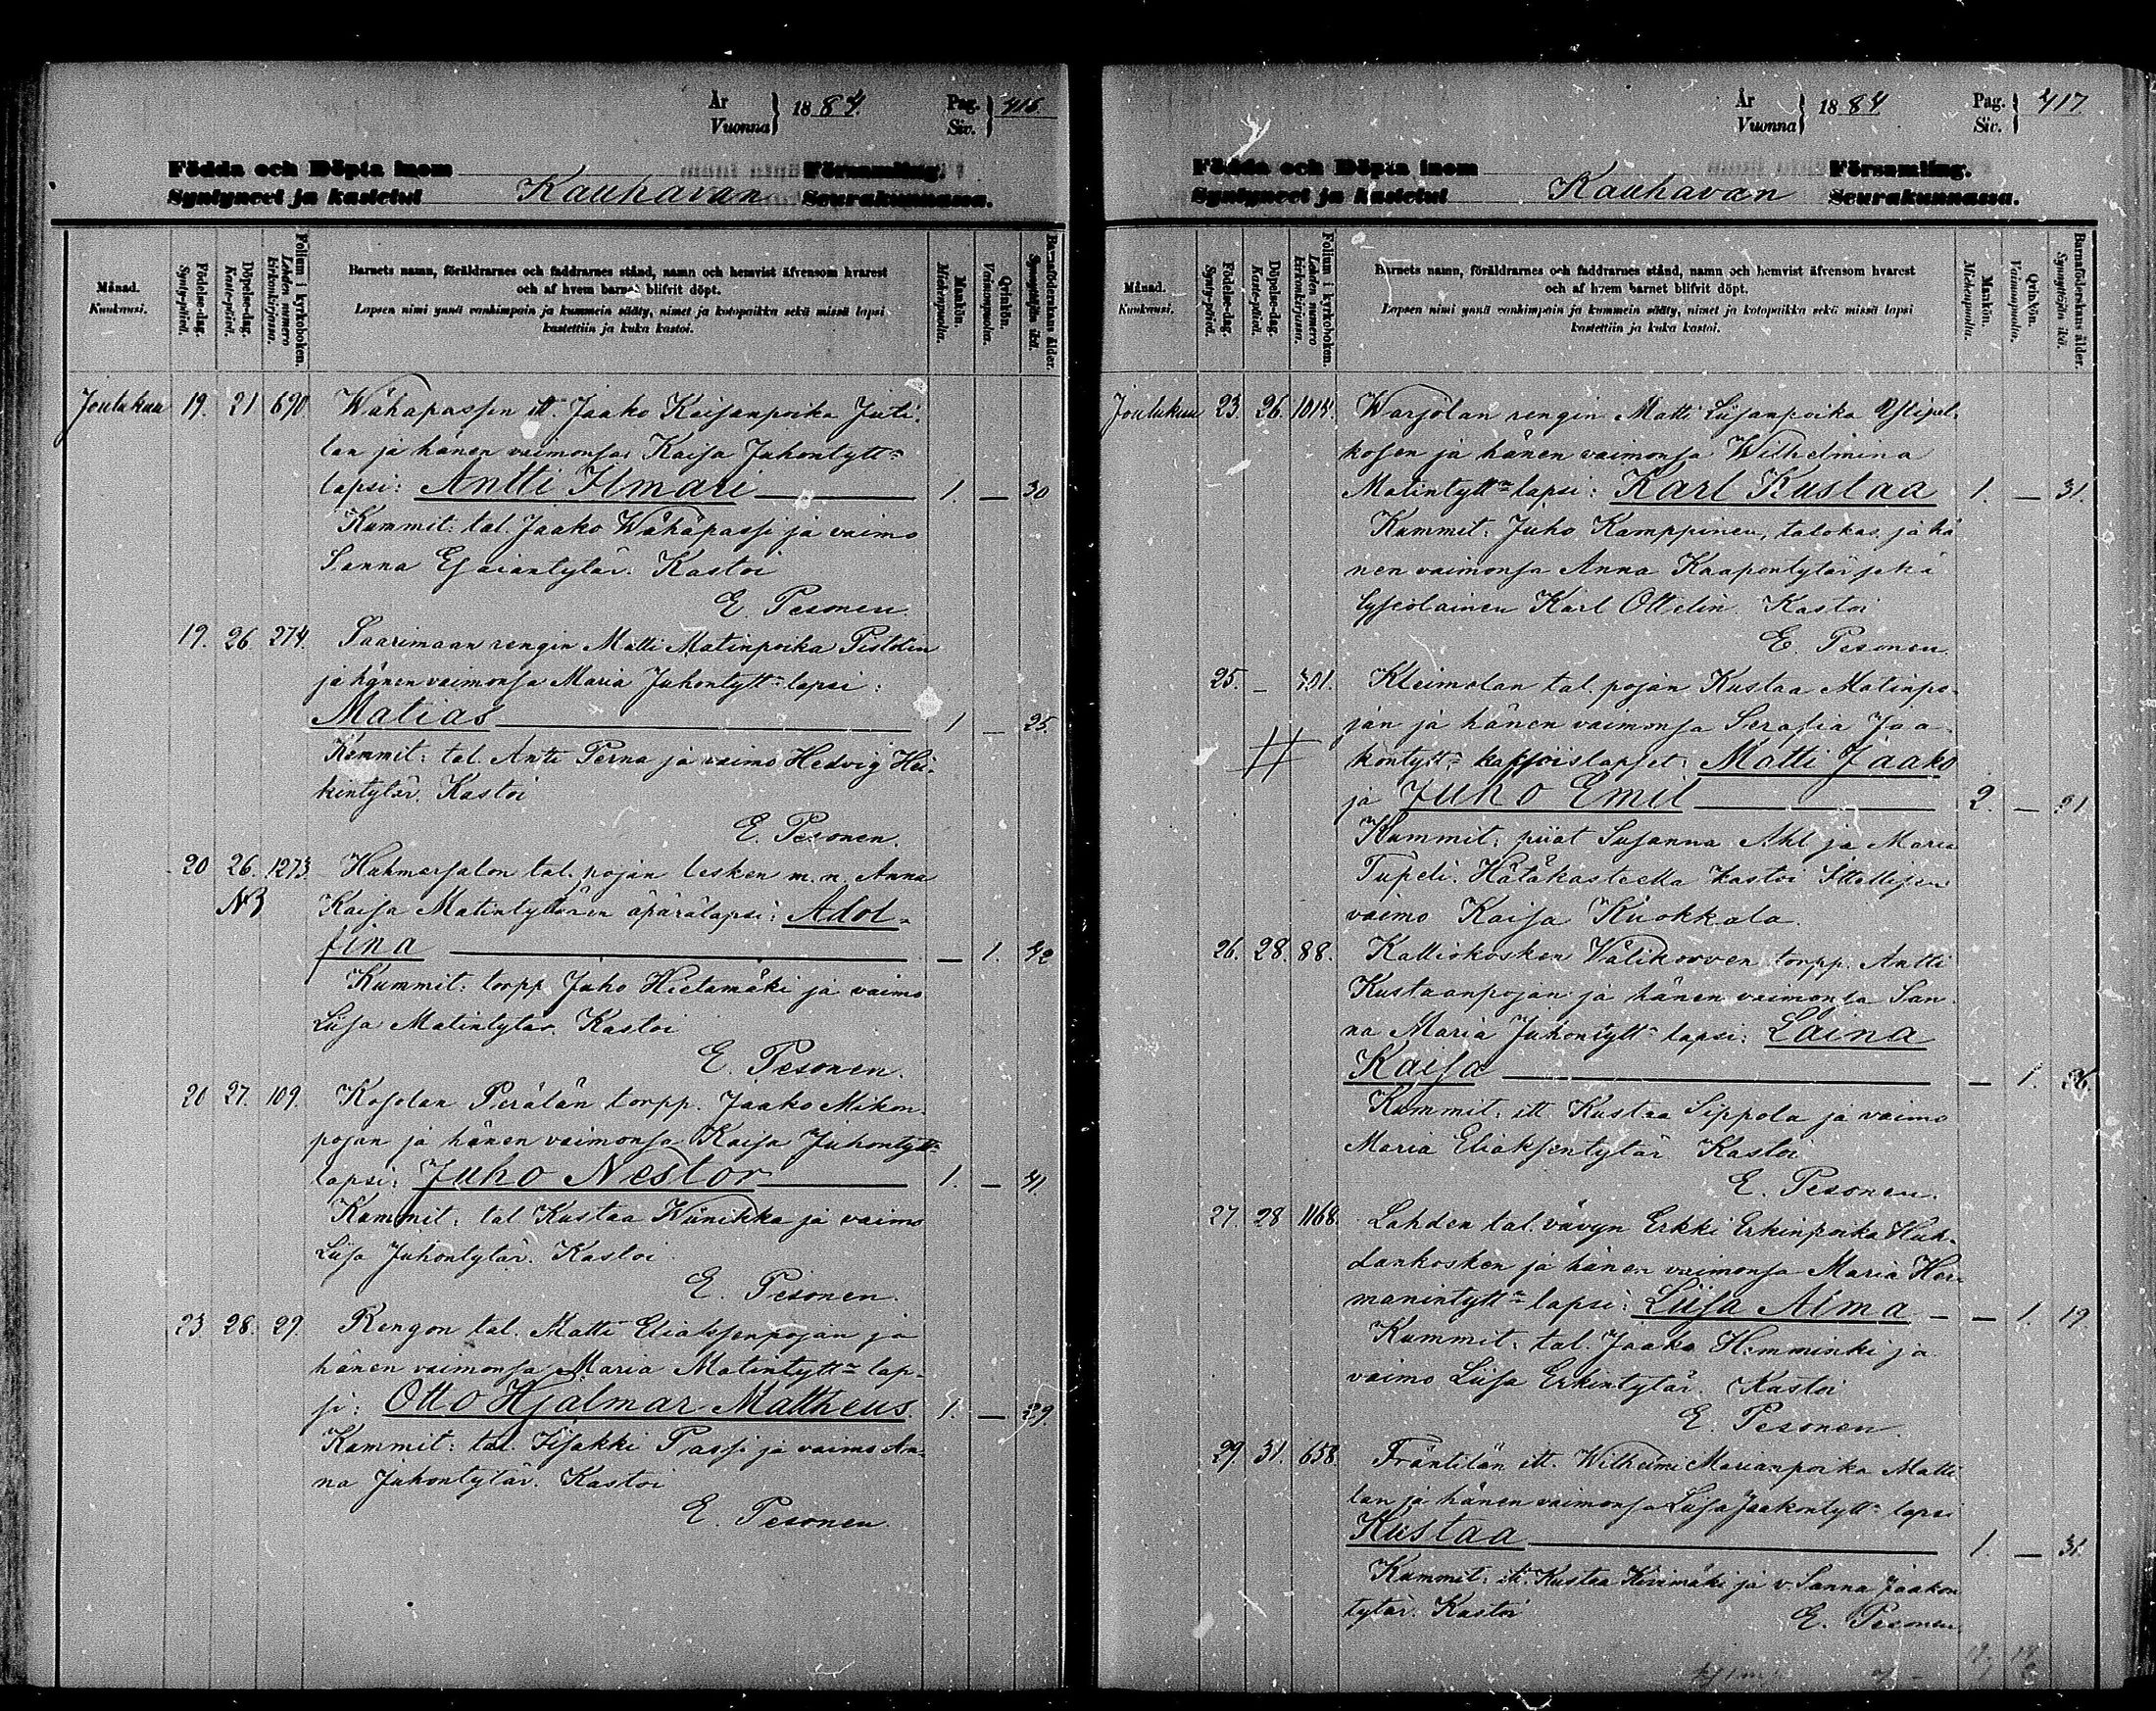 År
Vuonna } 1884. Pag.
Siv. } 416
Födda och Döpta inom Församling.
Syntyneet ja kastetut Kauhavan Seurakunnassa.
Månad.
Kuukausi.
Födelse-dag.
Synty-päivä.
Döpelse-dag.
Kaste-päivä.
Folium i kyrkoboken.
Lehden numero kirkonkirjassa.
Barnets namn, föräldrarnes och faddrarnes stånd, namn och hemvist äfvensom hvarest
och af hvem barnet blifvit döpt.
Lapsen nimi ynnä vanhimpain ja kummein sääty, nimet ja kotopaikka sekä missä lapsi
kastettiin ja kuka kastoi.
Mankön.
Miehenpuolia.
Qvinkön.
Vaimonpuolia.
Barnaföderskans ålder.
Synnyttäjän ikä.
Joulukuu 19. 21 690 Wähäpassin itt. Jaako Kaisanpoika Juti-
lan ja hänen vaimonsa Kaisa Juhontytt:n
lapsi: Antti Ilmari 1. — 30
Kummit: tal. Jaako Wähäpassi ja vaimo
Sanna Esaiantytär. Kastoi
E. Pesonen
19. 26 274. Saarimaan rengin Matti Matinpoika Pistolin
ja hänen vaimonsa Maria Juhontytt:n lapsi:
Matias 1 — 25.
Kummit: tal. Antti Perna ja vaimo Hedvig Hei-
kintytär. Kastoi
E. Pesonen.
20 26. 1273 Huhmarsalon tal. pojan lesken m.n. Anna
N3 Kaisa Matintyttären äpärälapsi: Adol-
fina — 1. 42
Kummit: torpp. Juho Hietamäki ja vaimo
Liisa Matintytär. Kastoi
E. Pesonen.
20 27. 109. Kosolan Perälän torpp. Jaako Mikon-
pojan ja hänen vaimonsa Kaisa Juhontytt:n
lapsi: Juho Nestor 1. — 41.
Kummit: tal. Kustaa Wiinikka ja vaimo
Liisa Juhontytär. Kastoi
E. Pesonen.
23. 28. 29. Rengon tal. Matti Eliaksenpojan ja
hänen vaimonsa Maria Matintytt:n lap-
si: Otto Hjalmar Mattheus. 1. — 29
Kummit: tal. Iisakki Passi ja vaimo An-
na Juhontytär. Kastoi
E. Pesonen.
År
Vuonna } 1884 Pag.
Siv. } 417.
Födda och Döpta inom Församling.
Syntyneet ja kastetut Kauhavan Seurakunnassa.
Månad.
Kuukausi.
Födelse-dag.
Synty-päivä.
Döpelse-dag.
Kaste-päivä.
Folium i kyrkoboken.
Lehden numero kirkonkirjassa.
Barnets namn, föräldrarnes och faddrarnes stånd, namn och hemvist äfvensom hvarest
och af hvem barnet blifvit döpt.
Lapsen nimi ynnä vanhimpain ja kummein sääty, nimet ja kotopaikka sekä missä lapsi
kastettiin ja kuka kastoi.
Mankön.
Miehenpuolia.
Qvinkön.
Vaimonpuolia.
Barnaföderskans ålder.
Synnyttäjän ikä.
Joulukuu 23. 26. 1014. Warjolan rengin Matti Liisanpoika Ylipel-
kosen ja hänen vaimonsa Wilhelmina
Matintytt:n lapsi: Karl Kustaa 1. — 31.
Kummit: Juho Kamppinen, talokas ja hä-
nen vaimonsa Anna Kaapontytär sekä
lyseolainen Karl Ottelin. Kastoi
E. Pesonen.
25. — 701. Kleimolan tal. pojan Kustaa Matinpo-
jan ja hänen vaimonsa Serafia Jaa-
kontytt:n kaksoislapset: Matti Jaako
ja Juho Emil 2. — 21.
Kummit: piiat Susanna Ahl ja Maria
Tupeli. Hätäkasteella kastoi Itsellisen
vaimo Kaisa Kuokkala.
26. 28. 88. Kalliokosken Wälikorven torpp. Antti
Kustaanpojan ja hänen vaimonsa San-
na Maria Juhontytt:n lapsi: Laina
Kaisa — 1. 26.
Kummit: itt. Kustaa Sippola ja vaimo
Maria Eliaksentytär. Kastoi
E. Pesonen.
27. 28 1168. Lahden tal. vävyn Erkki Erkinpoika Huh-
tankosken ja hänen vaimonsa Maria Her-
manintytt:n lapsi: Liisa Alma — 1. 19
Kummit: tal. Jaako Hemminki ja
vaimo Liisa Erkintytär. Kastoi
E. Pesonen.
29. 31. 658 Fräntilän itt. Wilhelmi Marianpoika Matti-
lan ja hänen vaimonsa Liisa Jaakontytt:n lapsi
Kustaa 1. — 31.
Kummit: itt. Kustaa Kivimäki ja v. Sanna Jaakon
tytär. Kastoi E. Pesonen.